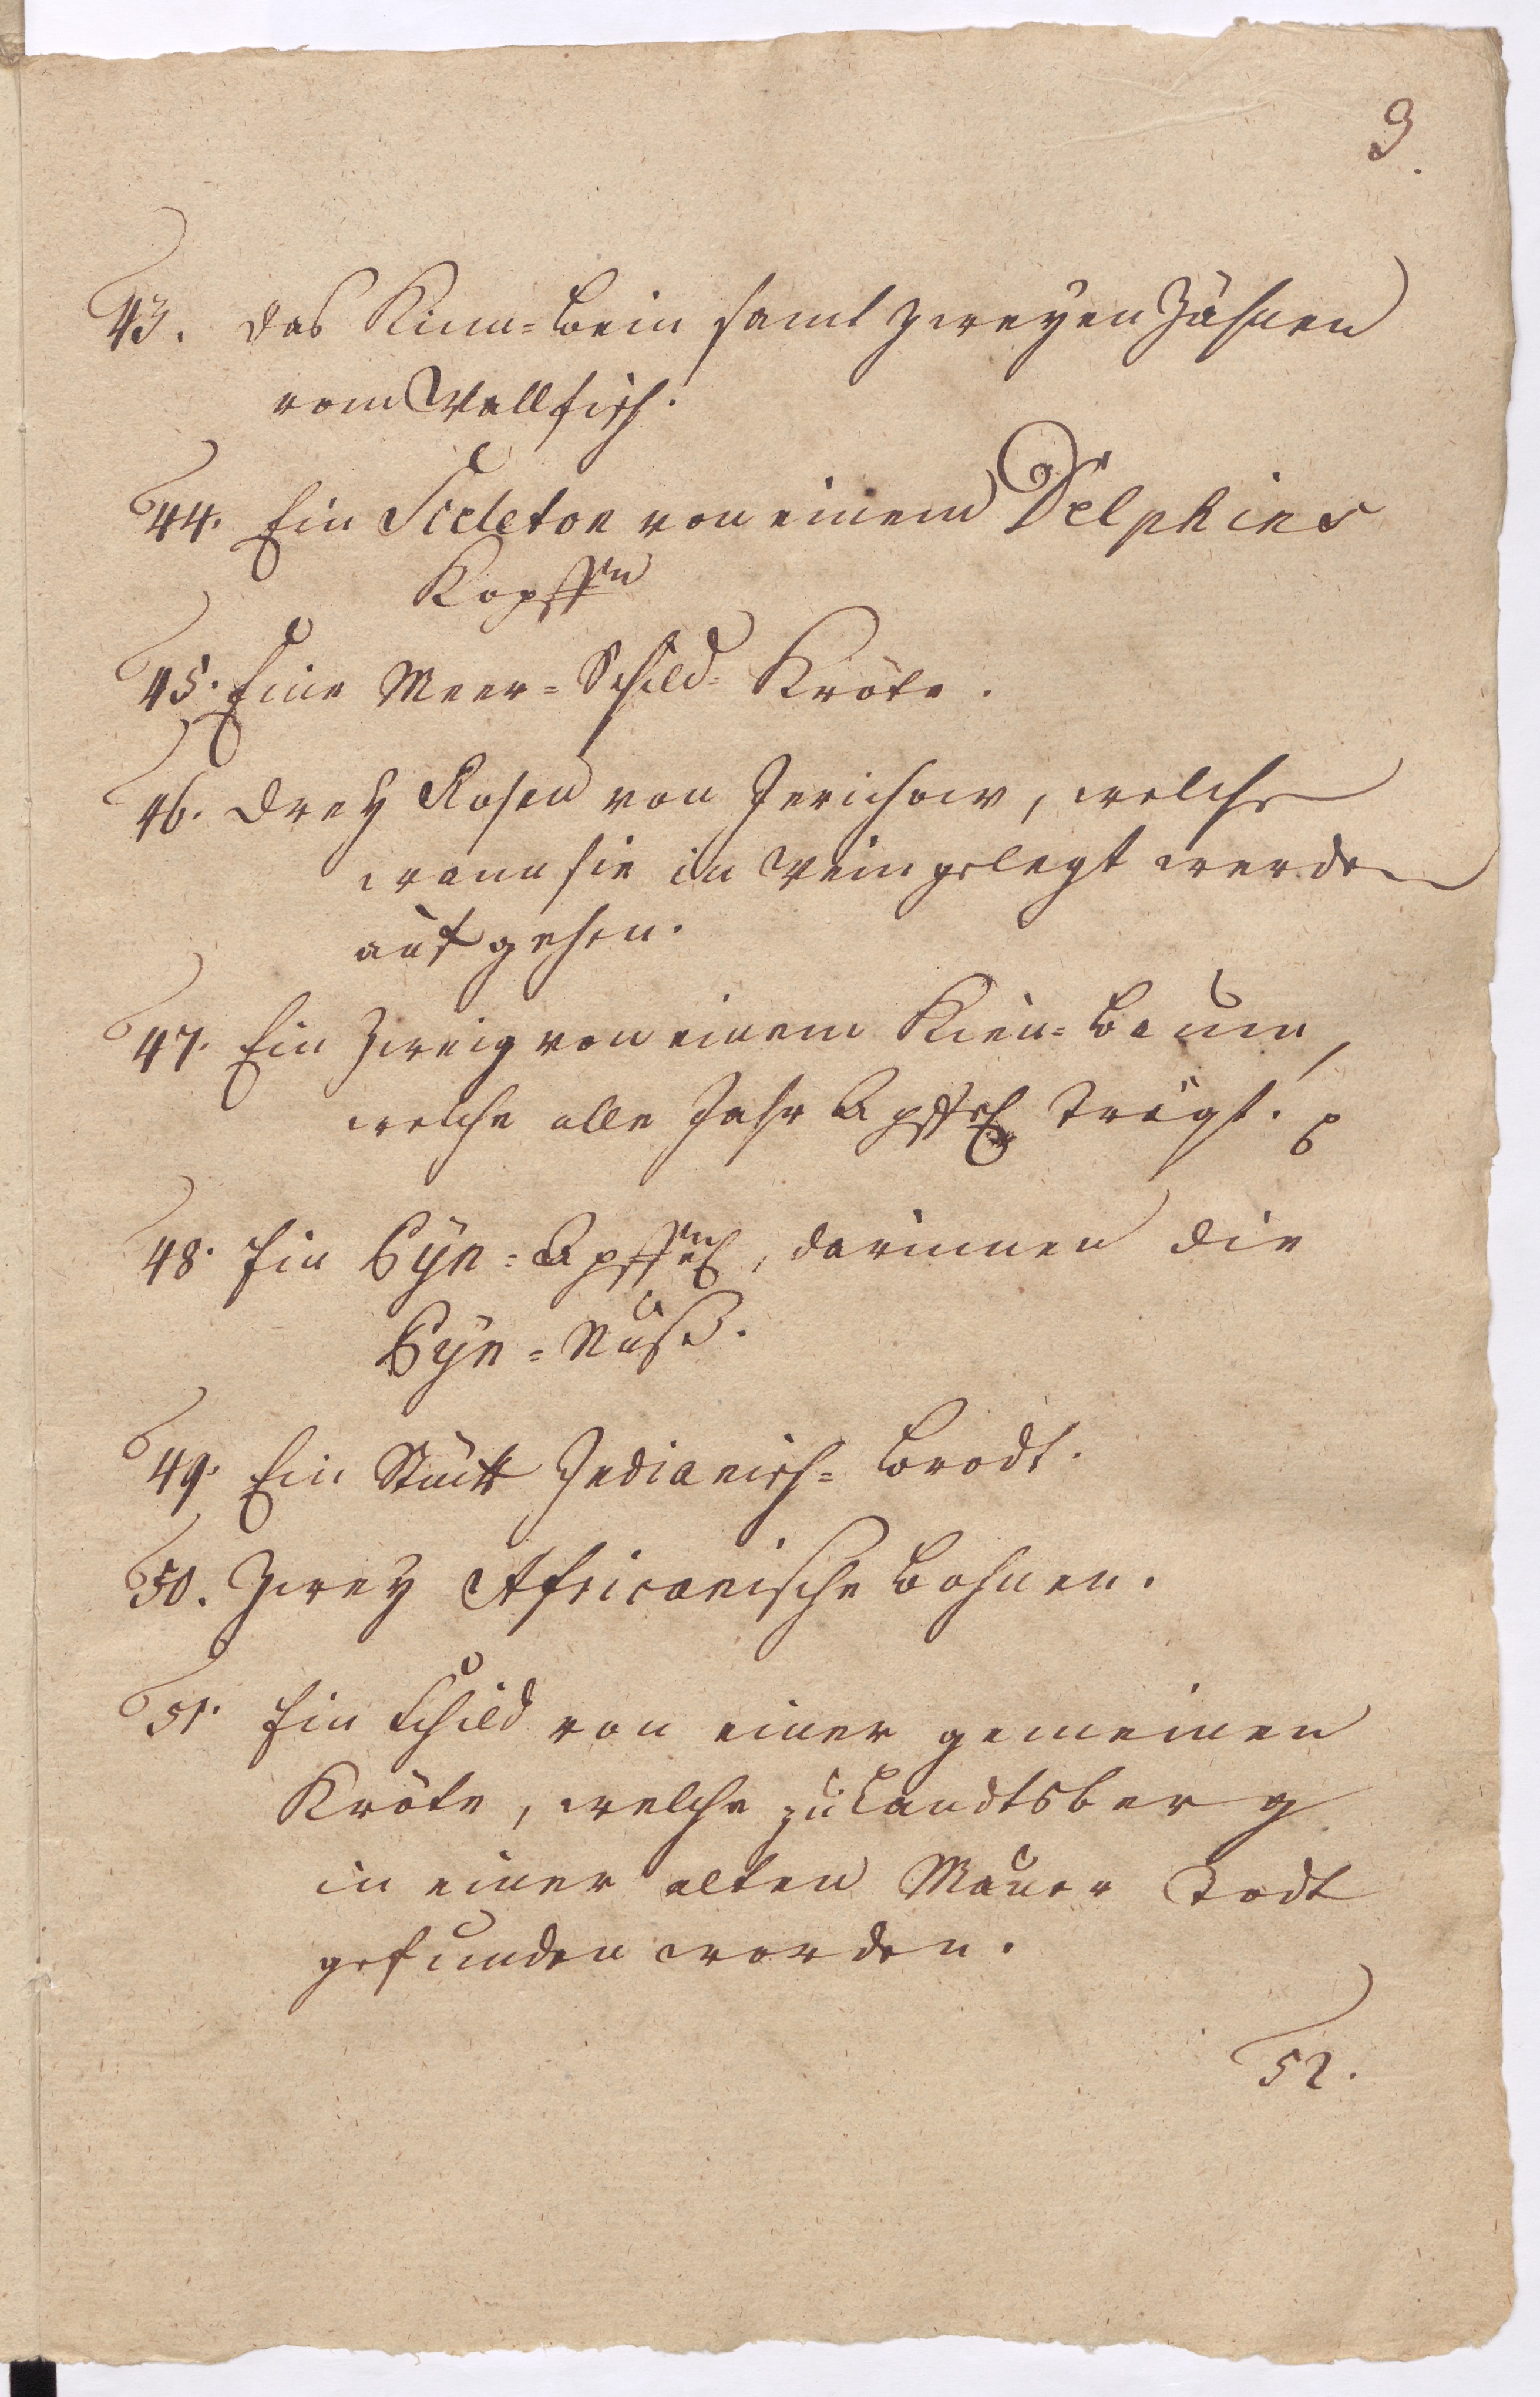 9.
43. das Kinn=Bein samt zweyen Zähnen
vom Wallfisch.
44. Ein Sceleton von einem Delphins
Kopff
45. Eine Meer=Schild=Kröte.
46. drey Rosen von Jerichow, welche
wann sie in Wein gelegt werden
aufgehen.
47. Ein Zweig von einem Kien=Baum,
welche alle Jahr Apffel trägt.
48. Ein Apffel, darinnen die
Nuß.
49. Ein Stück Indianisch=Brodt.
50. Zwey Africanische Bohnen.
51. Ein Schild von einer gemeinen
Kröte, welche zu Landtsberg
in einer alten Mauer Todt
gefunden worden.
52.